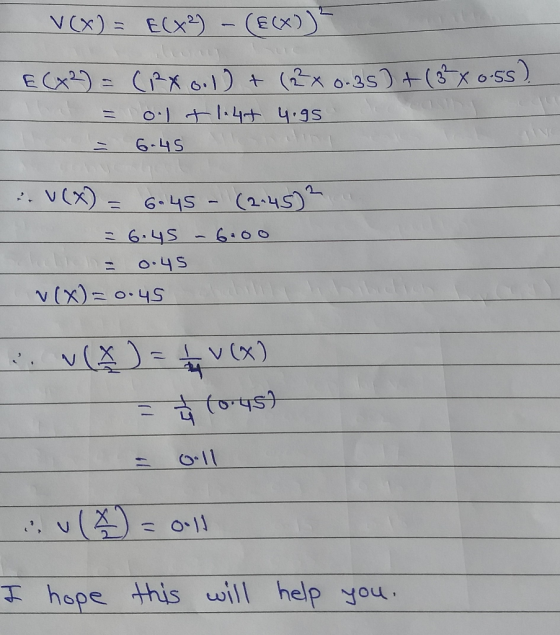 V(X) = E(X²) - (E(X))²
E(X²) = (1² × 0.1) + (2² × 0.35) + (3² × 0.55).
= 0.1 + 1.4 + 4.95
= 6.45
∴ V(X) = 6.45 - (2.45)²
= 6.45 - 6.00
= 0.45
V(X) = 0.45
∴ V(X/2) = 1/4 V(X)
= 1/4 (0.45)
= 0.11
∴ V(X/2) = 0.11
I hope this will help you.